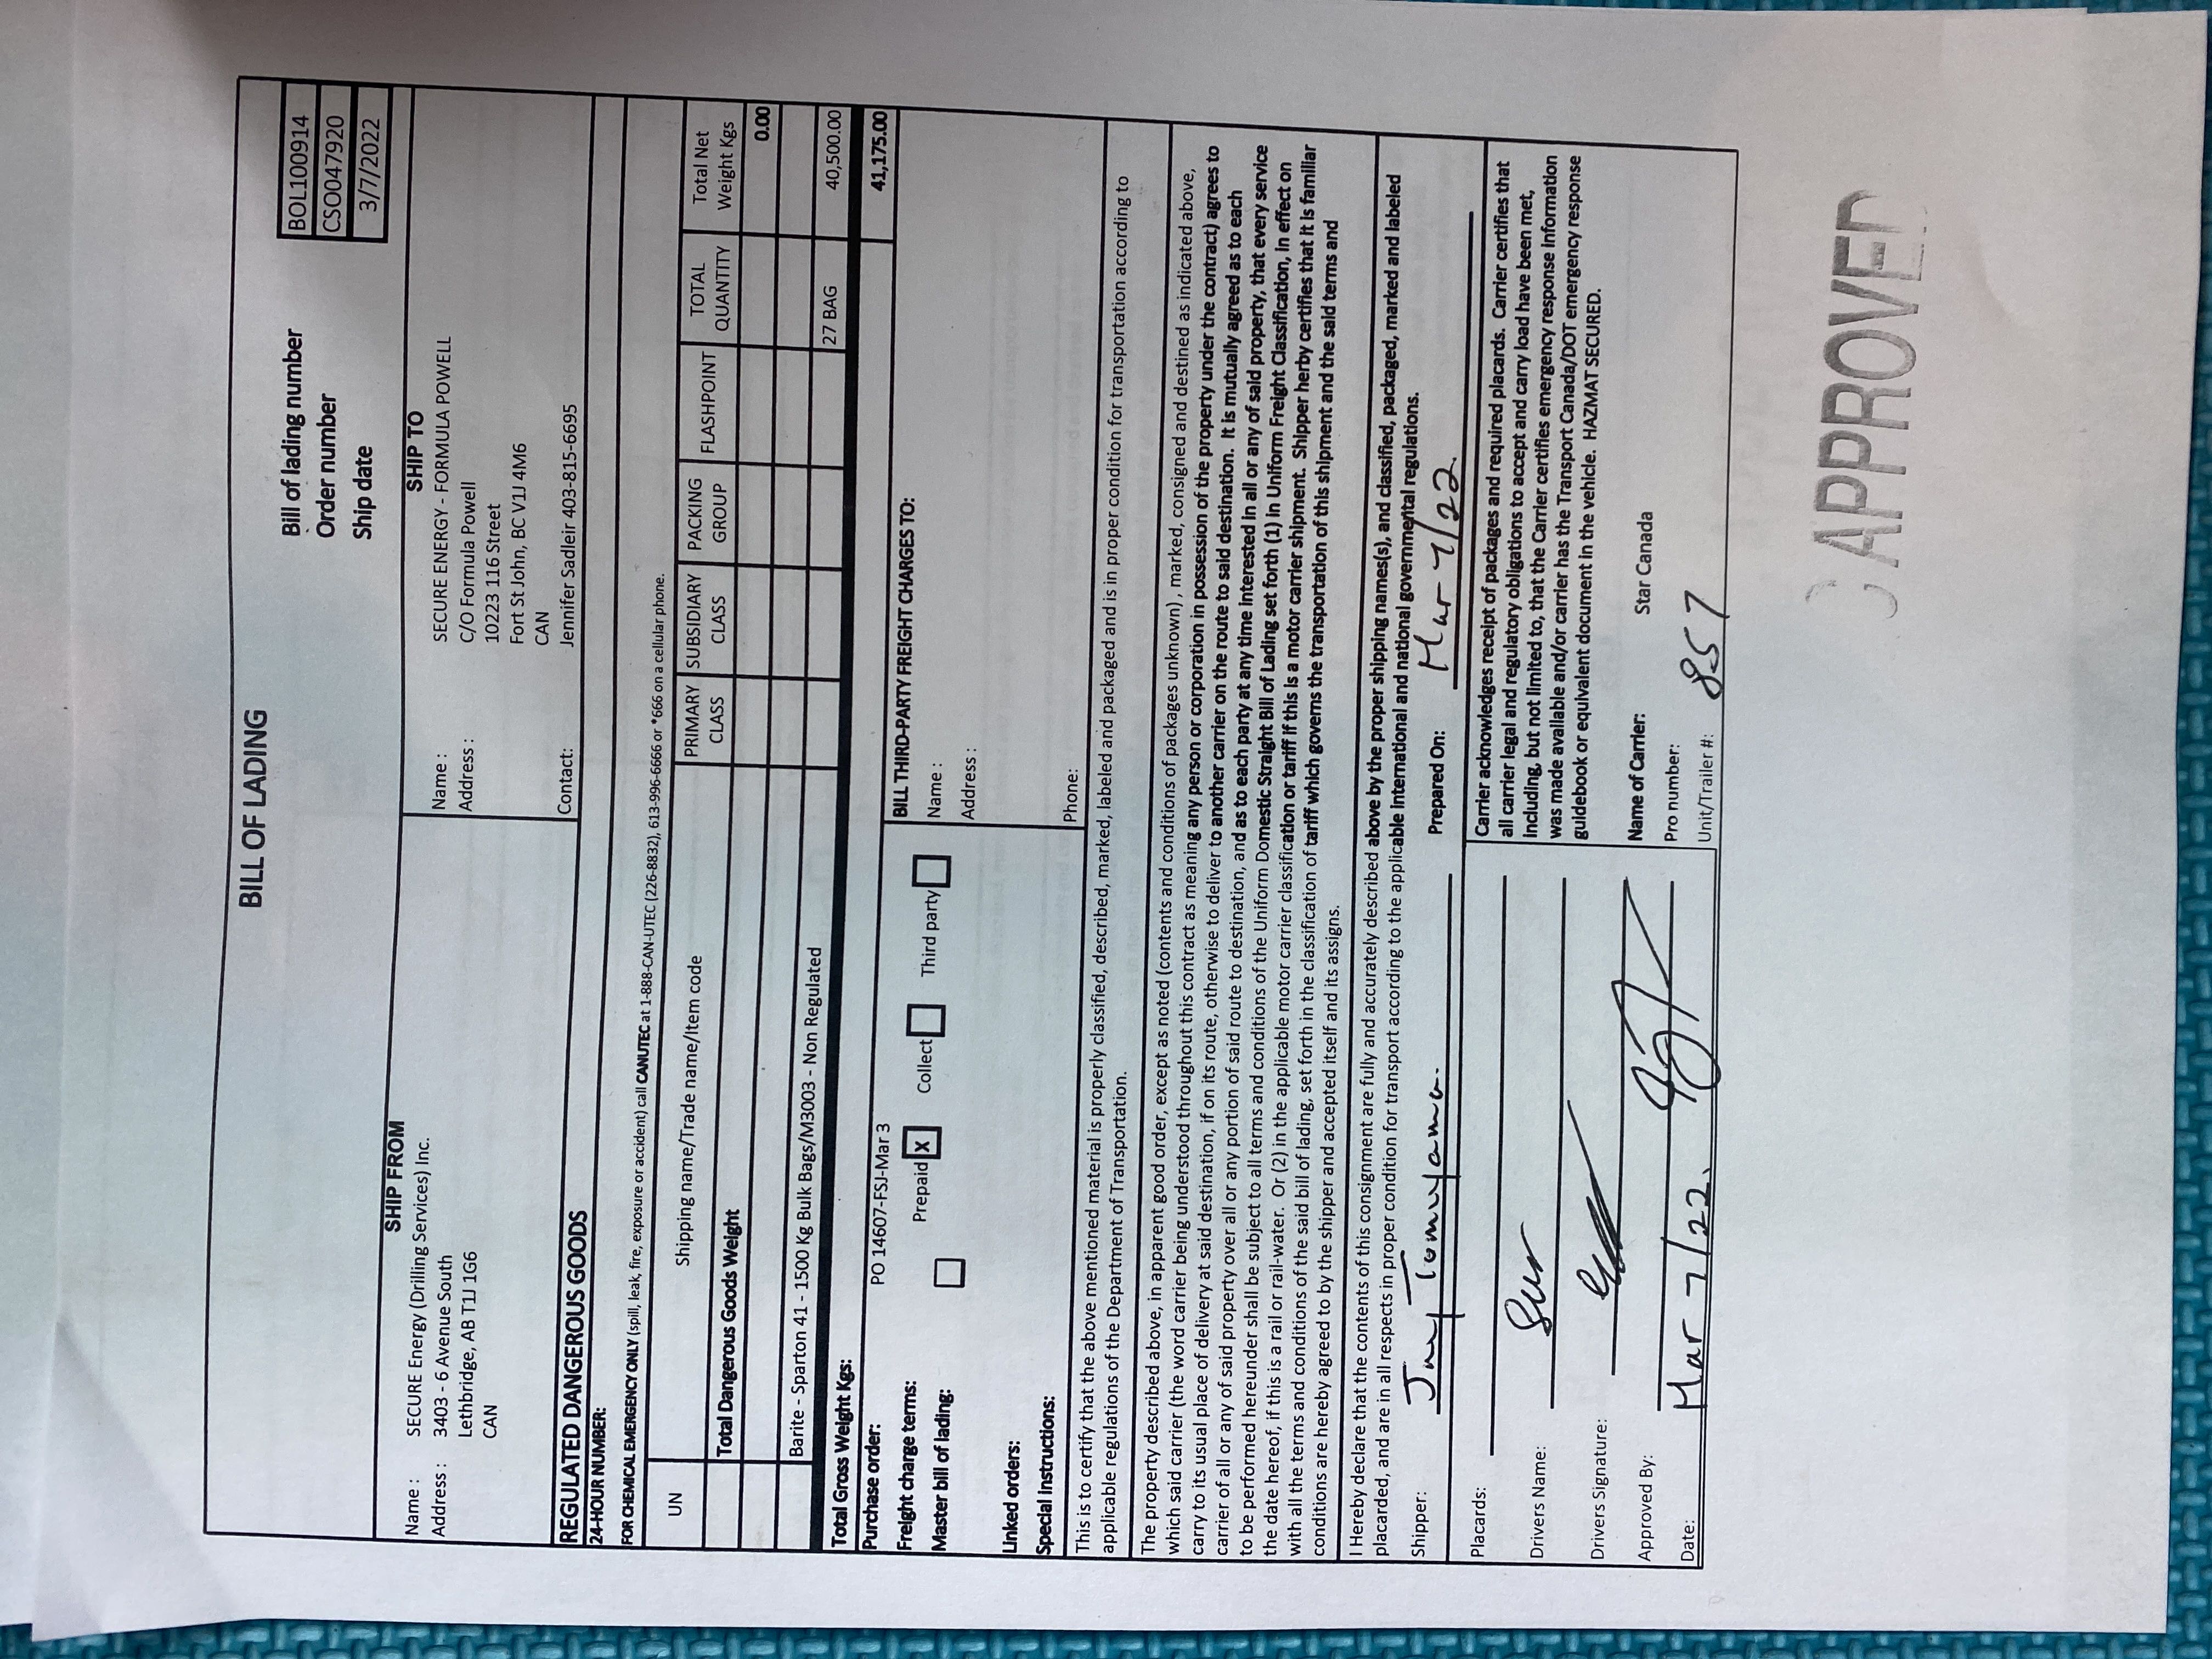 BILL OF LADING
Bill of lading number BOL100914
Order number CSO047920
Ship date 3/7/2022
SHIP FROM
Name : SECURE Energy (Drilling Services) Inc.
Address : 3403 - 6 Avenue South
Lethbridge, AB T1J 1G6
CAN
SHIP TO
Name : SECURE ENERGY - FORMULA POWELL
Address : C/O Formula Powell
10223 116 Street
Fort St John, BC V1J 4M6
CAN
Contact: Jennifer Sadleir 403-815-6695
REGULATED DANGEROUS GOODS
24-HOUR NUMBER:
FOR CHEMICAL EMERGENCY ONLY (spill, leak, fire, exposure or accident) call CANUTEC at 1-888-CAN-UTEC (226-8832), 613-996-6666 or *666 on a cellular phone.
UN Shipping name/Trade name/Item code PRIMARY CLASS SUBSIDIARY CLASS PACKING GROUP FLASHPOINT TOTAL QUANTITY Total Net Weight Kgs
Total Dangerous Goods Weight 0.00
Barite - Sparton 41 - 1500 Kg Bulk Bags/M3003 - Non Regulated 27 BAG 40,500.00
Total Gross Weight Kgs: 41,175.00
Purchase order: PO 14607-FSJ-Mar 3
Freight charge terms: Prepaid X Collect Third party
Master bill of lading:
Linked orders:
Special instructions:
BILL THIRD-PARTY FREIGHT CHARGES TO:
Name :
Address :
Phone:
This is to certify that the above mentioned material is properly classified, described, marked, labeled and packaged and is in proper condition for transportation according to
applicable regulations of the Department of Transportation.
The property described above, in apparent good order, except as noted (contents and conditions of packages unknown) , marked, consigned and destined as indicated above,
which said carrier (the word carrier being understood throughout this contract as meaning any person or corporation in possession of the property under the contract) agrees to
carry to its usual place of delivery at said destination, if on its route, otherwise to deliver to another carrier on the route to said destination. It is mutually agreed as to each
carrier of all or any of said property over all or any portion of said route to destination, and as to each party at any time interested in all or any of said property, that every service
to be performed hereunder shall be subject to all terms and conditions of the Uniform Domestic Straight Bill of Lading set forth (1) in Uniform Freight Classification, in effect on
the date hereof, if this is a rail or rail-water. Or (2) in the applicable motor carrier classification or tariff if this is a motor carrier shipment. Shipper herby certifies that it is familiar
with all the terms and conditions of the said bill of lading, set forth in the classification of tariff which governs the transportation of this shipment and the said terms and
conditions are hereby agreed to by the shipper and accepted itself and its assigns.
I Hereby declare that the contents of this consignment are fully and accurately described above by the proper shipping names(s), and classified, packaged, marked and labeled
placarded, and are in all respects in proper condition for transport according to the applicable International and national governmental regulations.
Shipper: Jay Tomuyama. Prepared On: Mar 7/22.
Placards:
Drivers Name:
Drivers Signature:
Approved By:
Date: Mar 7/22.
Carrier acknowledges receipt of packages and required placards. Carrier certifies that
all carrier legal and regulatory obligations to accept and carry load have been met,
including, but not limited to, that the Carrier certifies emergency response information
was made available and/or carrier has the Transport Canada/DOT emergency response
guidebook or equivalent document in the vehicle. HAZMAT SECURED.
Name of Carrier: Star Canada
Pro number:
Unit/Trailer #: 857
APPROVED